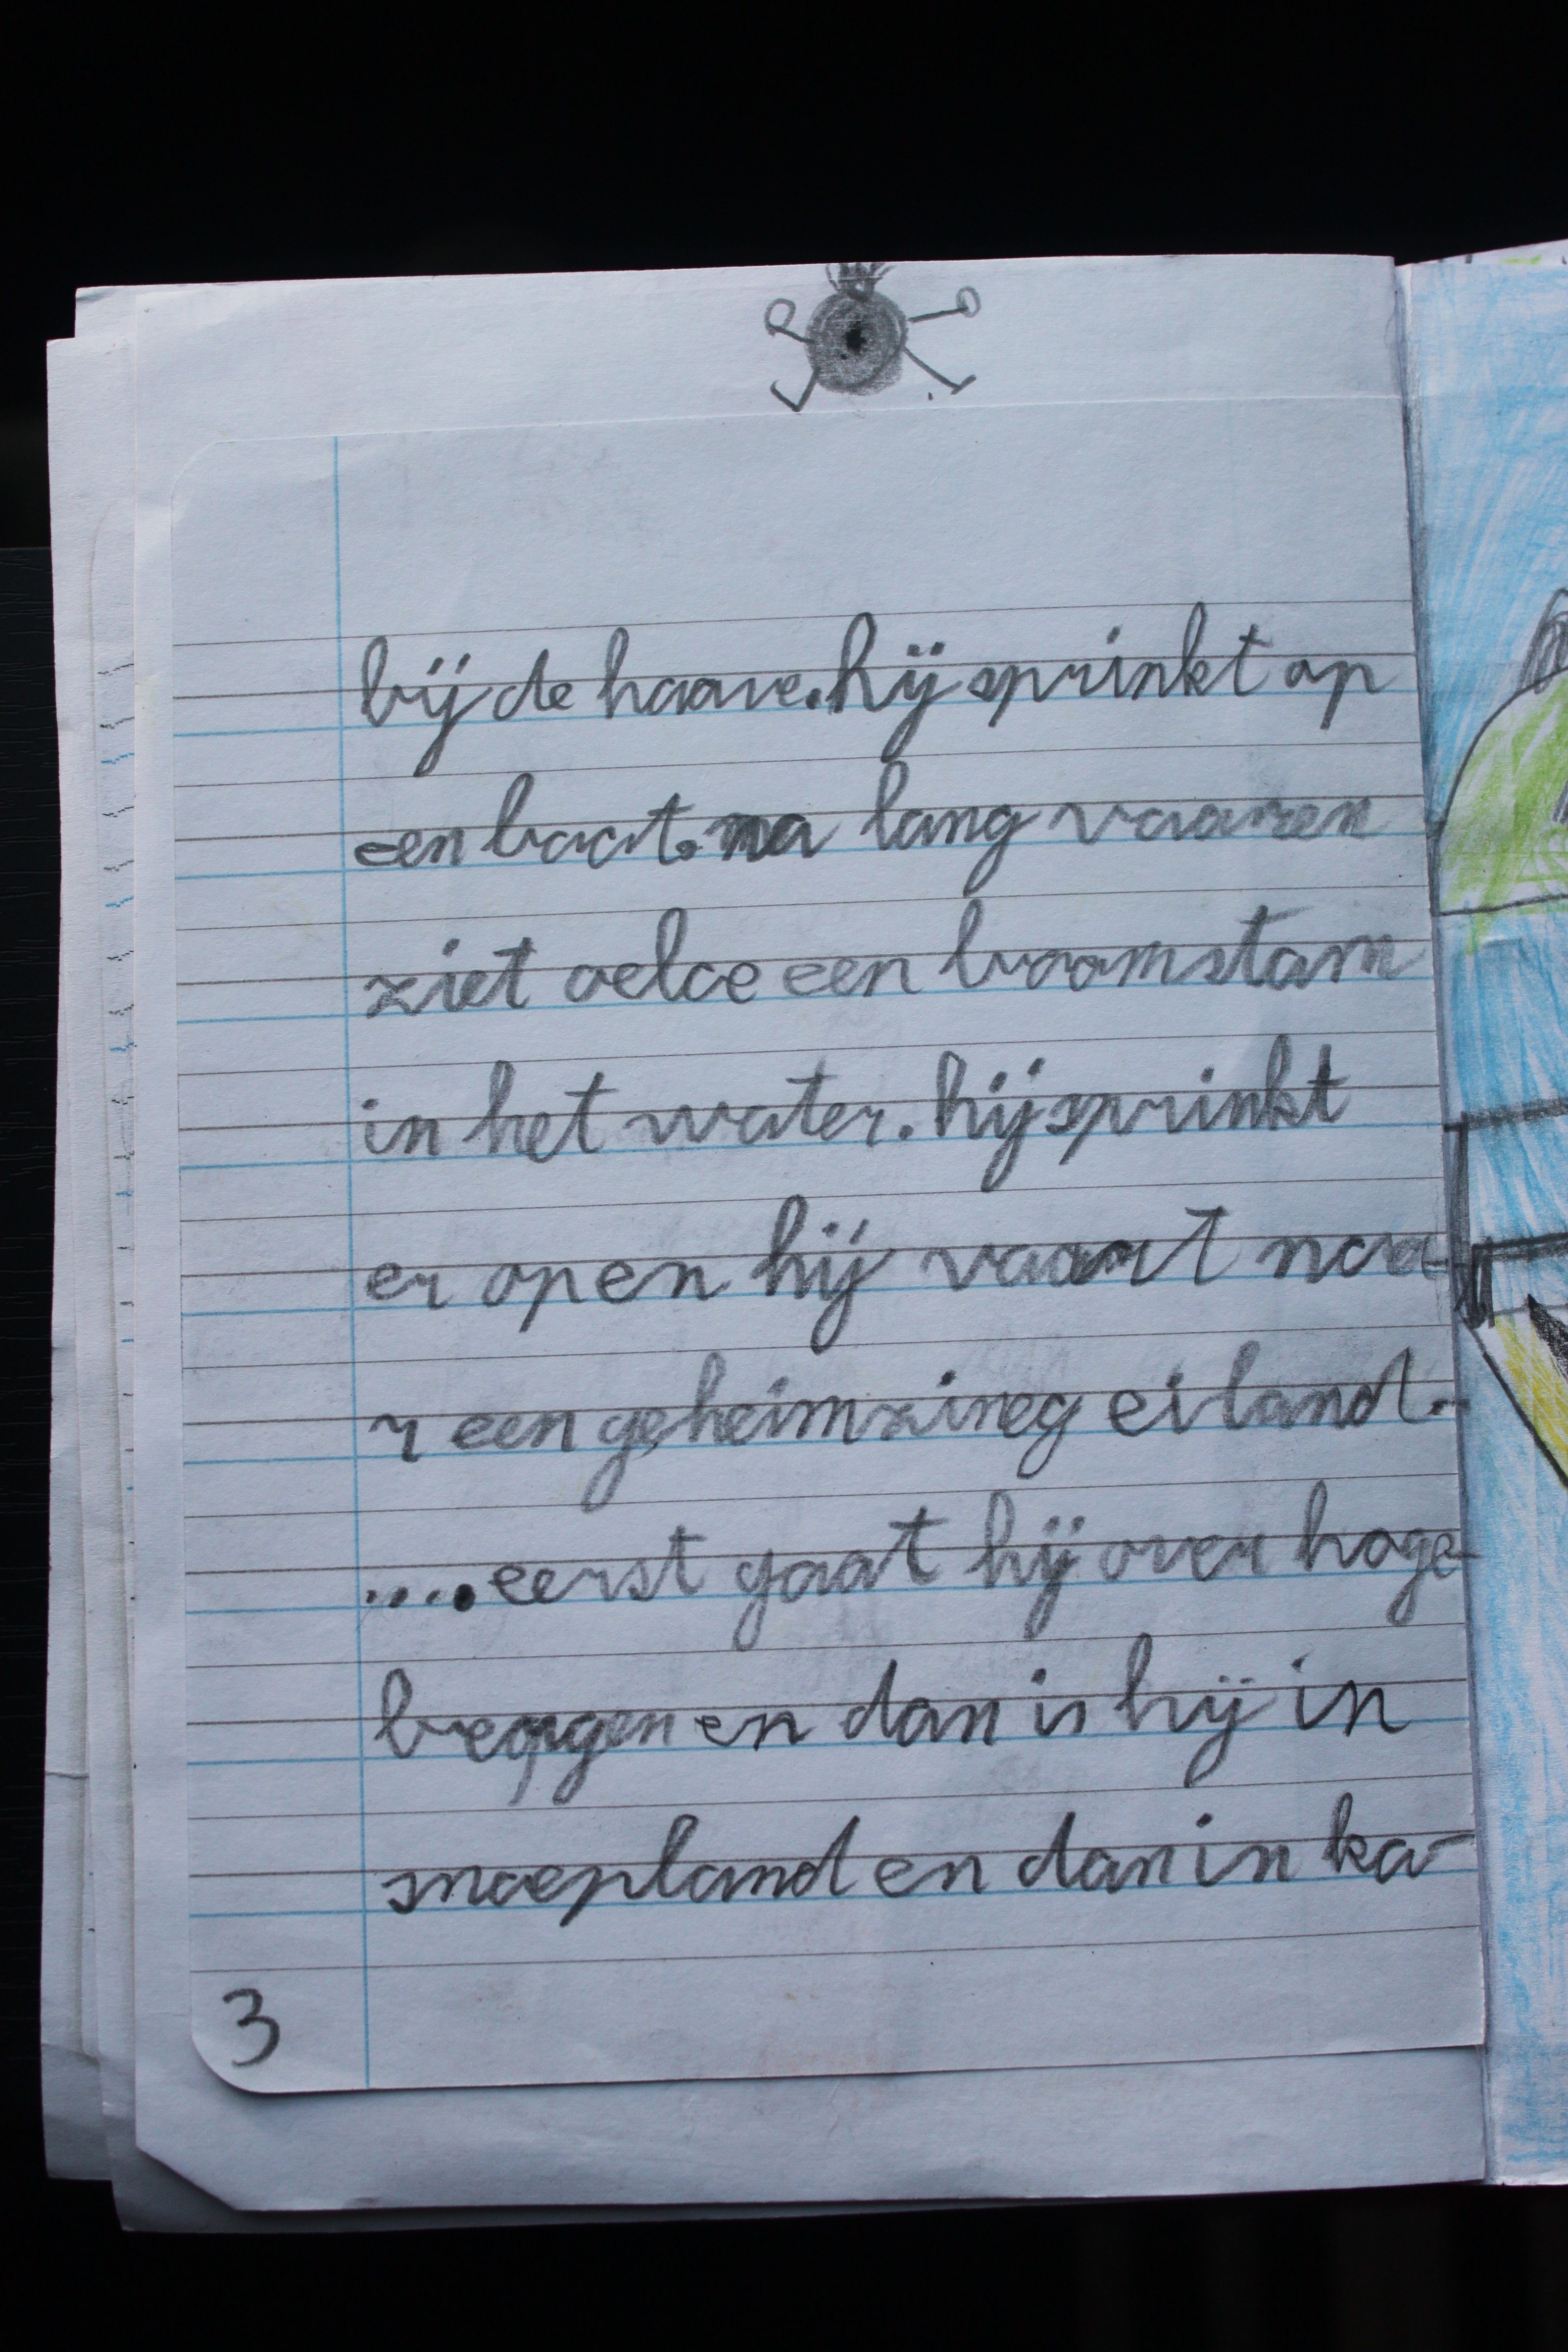 bij de haave. hij sprinkt op
een boot. na lang vaaren
ziet oeloe een boomstam
in het water. hij sprinkt
er op en hij vaart naa-
r een geheimzineg eiland.
.... eerst gaat hij over hoge
bergen en dan is hij in
snoepland en dan in ka-
3